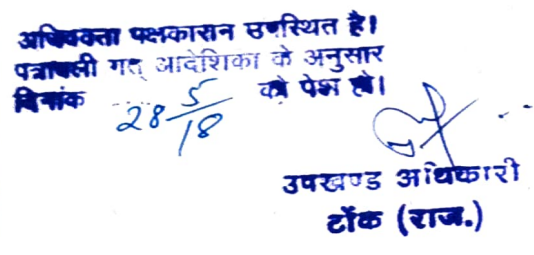 अधिवक्ता पक्षकारान उपस्थित है।
पत्रावली गत् आदेशिका के अनुसार
दिनांक 28/5/18 को पेश हो।
उपखण्ड अधिकारी
टोंक (राज.)